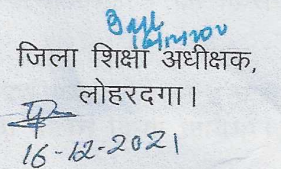 जिला शिक्षा अधीक्षक,
लोहरदगा।
16-12-2021